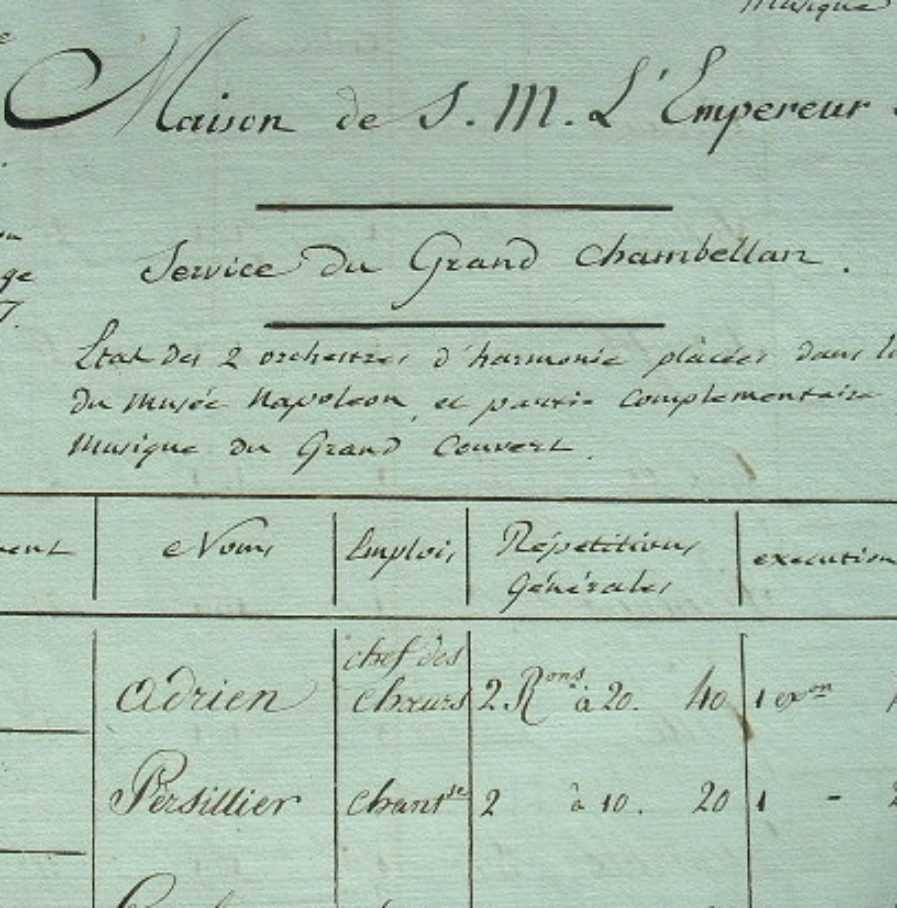 Musique
Maison de S. M. L'Empereur
Service du Grand Chambellan.
Etat des 2 orchestres d'harmonie placées dans
du musée Napoleon, et partie complementaire
Musique du Grand Couvert.
Noms Emplois Répétitions Générales execution
Adrien chef des chœurs 2. Rons à 20. 40 1 exon
Persillier chantse 2 à 10. 20 1 -